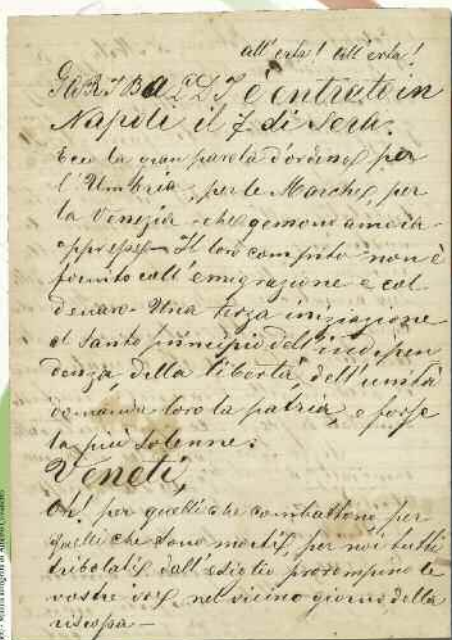 all'erta! all'erta!
GARIBALDI è entrato in
Napoli il 7 di Sett.
Ecco la gran parola d'ordine per
l'Umbria, per le Marche, per
la Venezia che gemono ancora
oppresse — Il loro compito non è
fornito coll'emigrazione e col
denaro. Una terza iniziazione
al santo principio dell'indipen
denza, della libertà, dell'unità
domanda loro la patria, e forse
la più solenne.
Veneti,
Oh! per quelli che combattono, per
quelli che sono morti, per noi tutti
tribolati dall'esiglio prorompino le
vostre ire, nel vicino giorno della
riscossa —